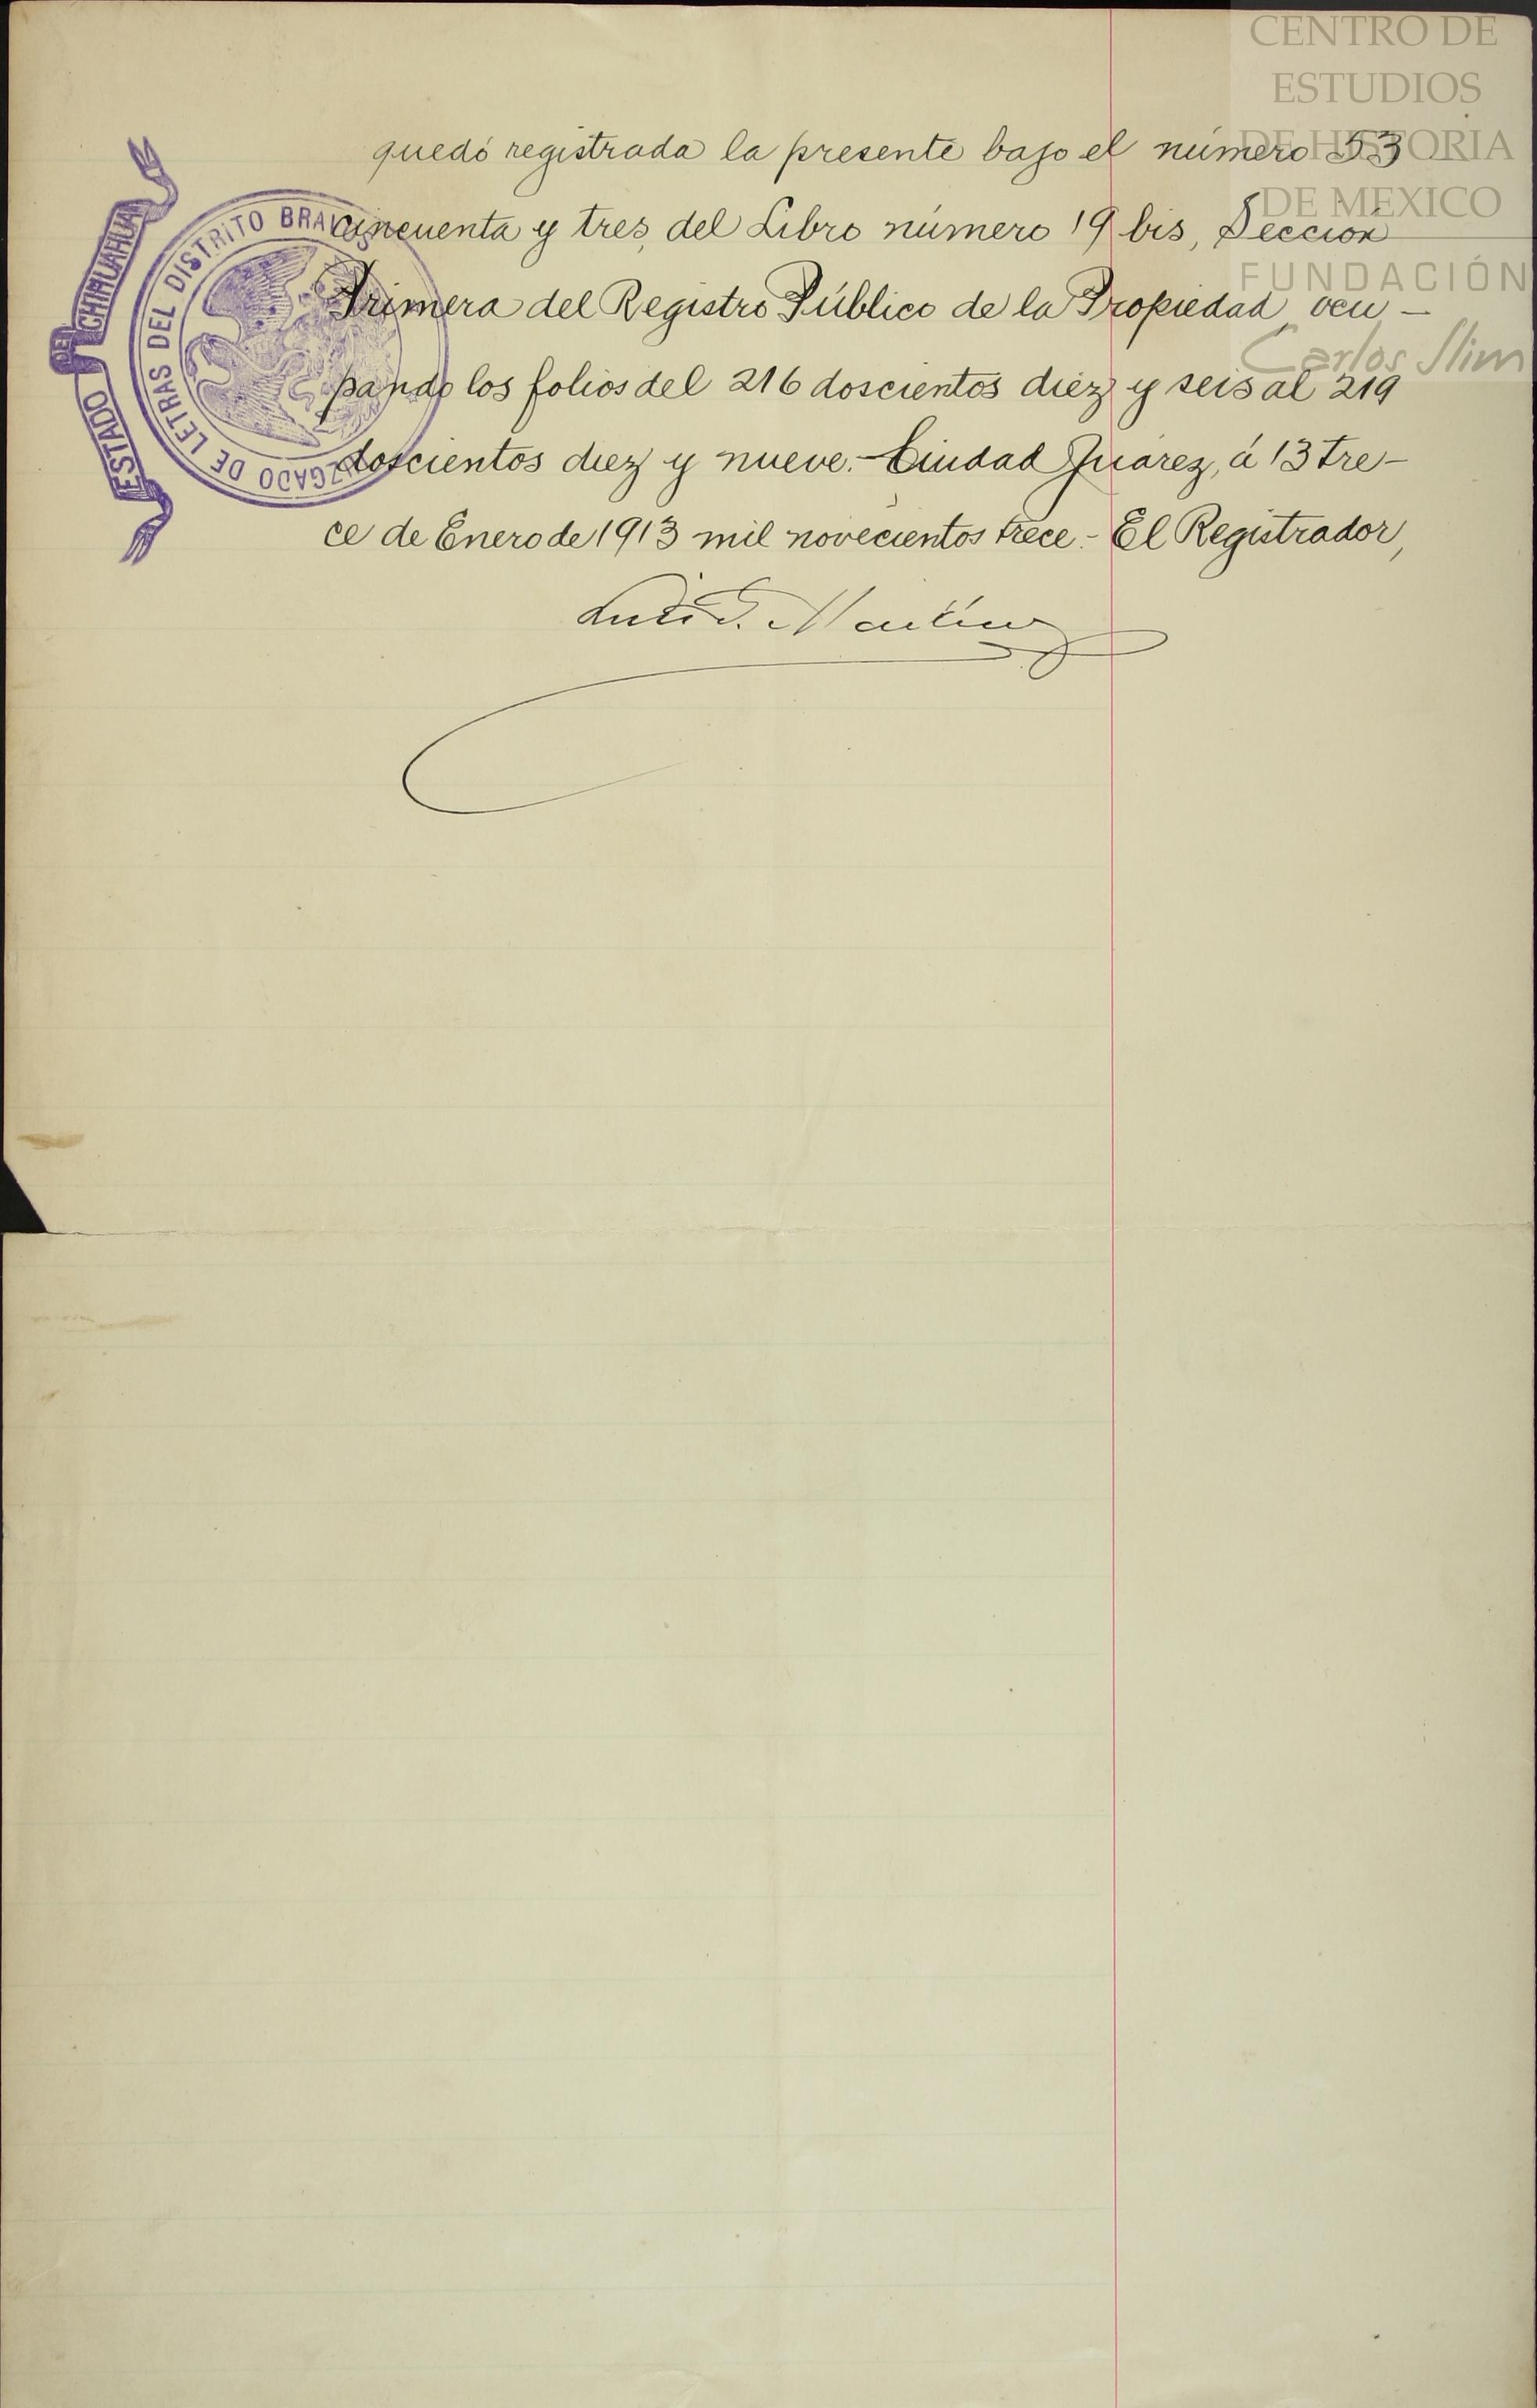 CENTRO DE
ESTUDIOS
DE HISTORIA
DE MEXICO
FUNDACIÓN
Carlos Slim
ESTADO DE CHIHUAHUA
JUZGADO DE LETRAS DEL DISTRITO BRAVOS
quedó registrada la presente bajo el número 53
cincuenta y tres, del Libro número 19 bis, Sección
Primera del Registro Público de la Propiedad, ocu-
pando los folios del 216 doscientos diez y seis al 219
doscientos diez y nueve.- Ciudad Juárez, á 13 tre-
ce de Enero de 1913 mil novecientos trece.- El Registrador,
Martínez